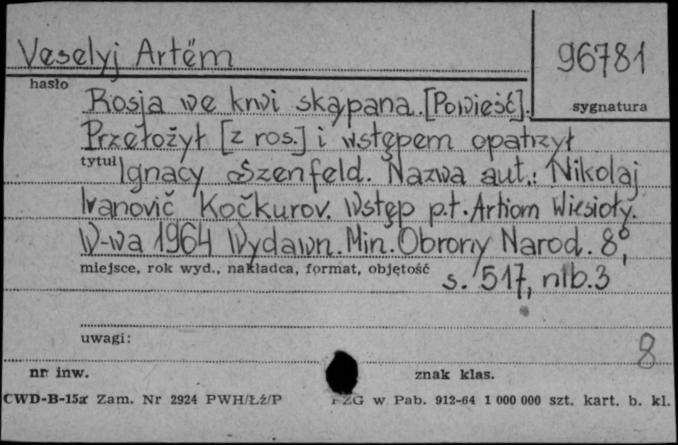 Veselyj Artëm
96781
hasło
sygnatura
Rosja we krwi skąpana. [Powieść].
Przełożył [z ros.] i wstępem opatrzył
tytuł Ignacy Szenfeld. Nazwa aut.: Nikolaj
Ivanovič Kočkurov. Wstęp p.t. Artiom Wiesioły.
W-wa 1964 Wydawn. Min. Obrony Narod. 8°,
miejsce, rok wyd., nakładca, format, objętość
s. 517, nlb. 3
uwagi:
8
nr inw.
znak klas.
CWD-B-15a Zam. Nr 2924 PWH/Łź/P
PZG w Pab. 912-64 1 000 000 szt. kart. b. kl.